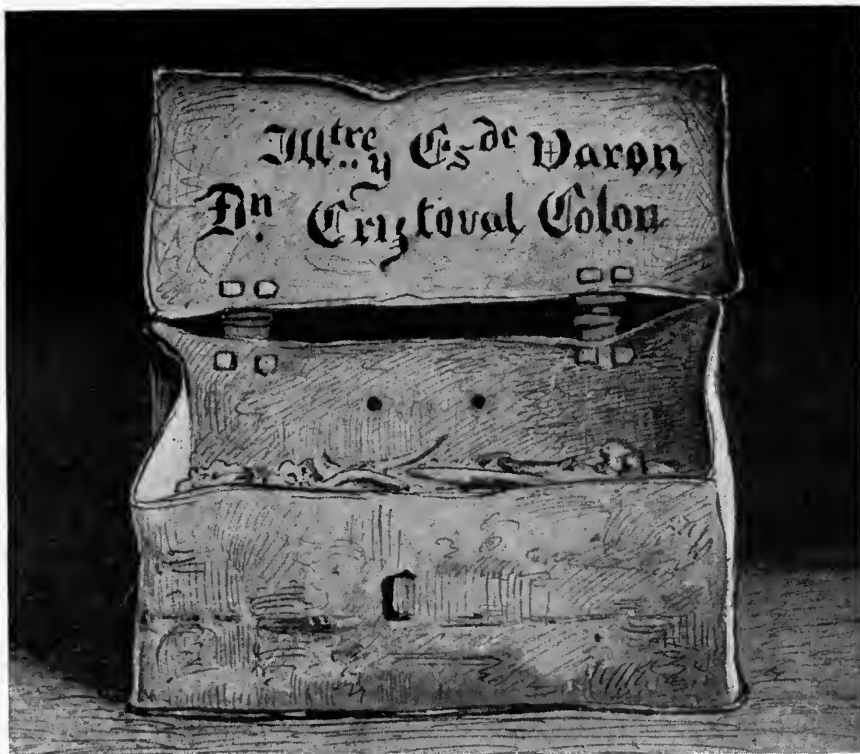 Illtre.. y Es de Varon
Dn. Criztoval Colon.
C